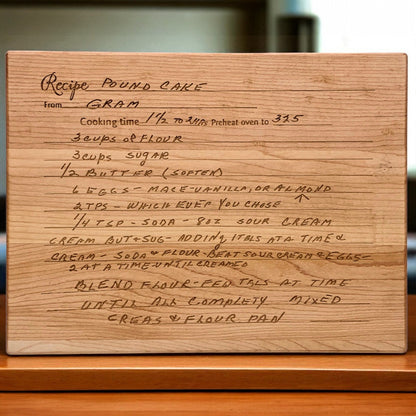 Recipe POUND CAKE
From GRAM
Cooking time 1 1/2 TO 2 HRS Preheat oven to 325
3 CUPS OF FLOUR
3 CUPS SUGAR
1/2 BUTTER (SOFTEN)
6 EGGS - MACE-VANILLA, OR ALMOND
2 TPS - WHICH EVER YOU CHOSE ↑
1/4 TSP - SODA - 8 OZ SOUR CREAM
CREAM BUT & SUG - ADDING 1 TBLS AT A TIME &
CREAM - SODA & FLOUR - BEAT SOUR CREAM & EGGS -
2 AT A TIME - UNTIL CREAMED
BLEND FLOUR - FEW TBLS AT TIME
UNTIL ALL COMPLETY MIXED
CREAS & FLOUR PAN